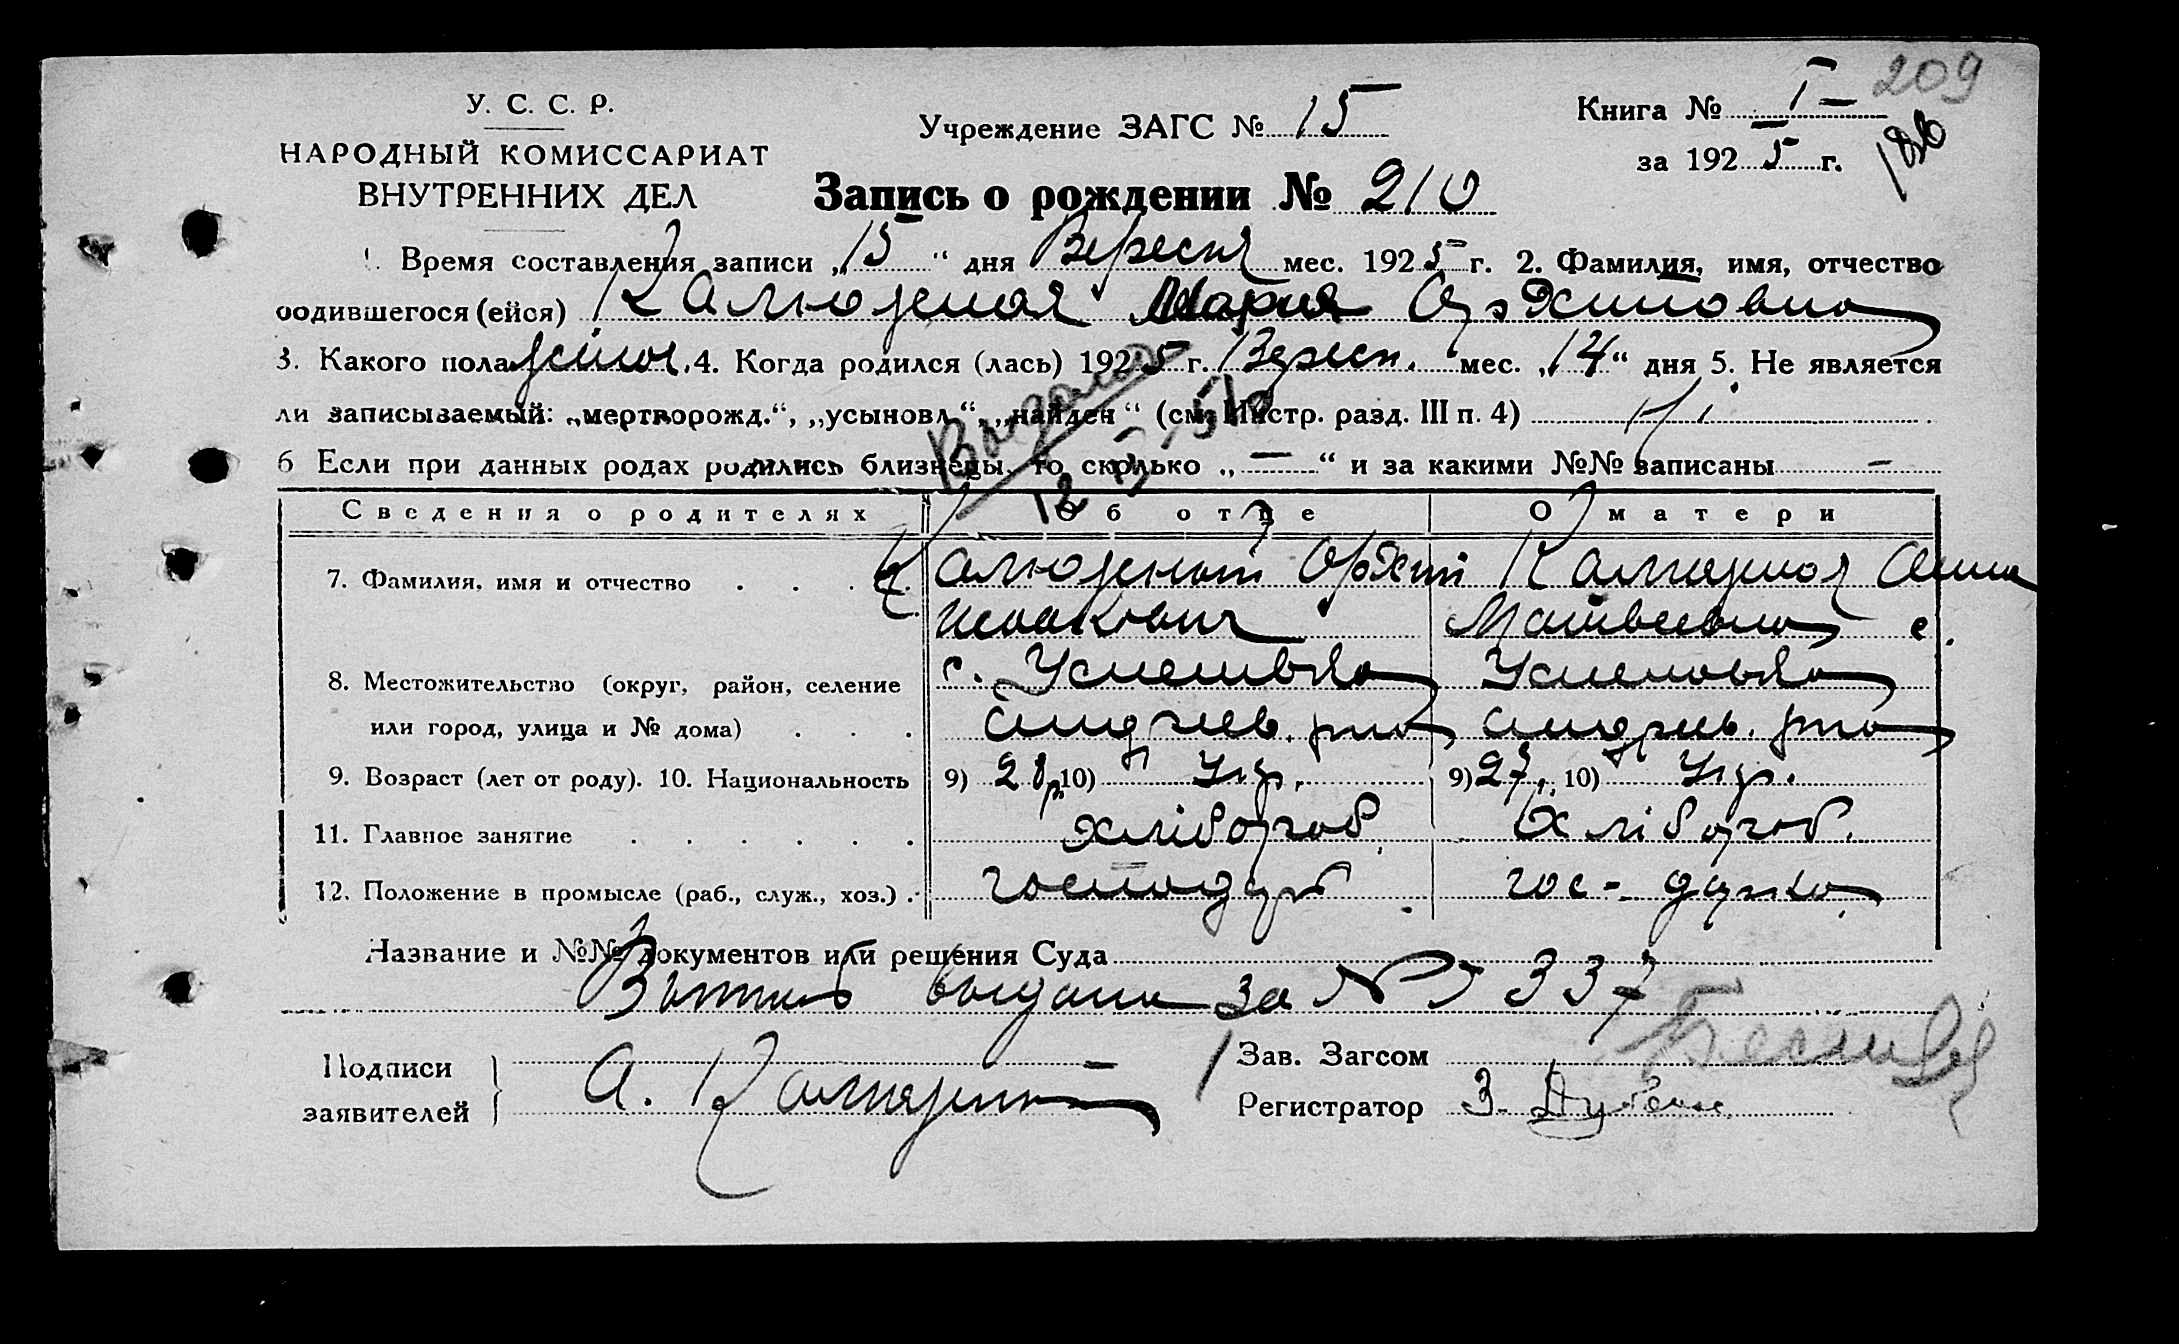 209
У. С. С. Р.
НАРОДНЫЙ КОМИССАРИАТ
ВНУТРЕННИХ ДЕЛ
Учреждение ЗАГС № 15
Книга № I
за 1925 г.
186
Запись о рождении № 210
1. Время составления записи „15“ дня Вересня мес. 1925 г. 2. Фамилия, имя, отчество
родившегося (ейся) Калюжная Мария
3. Какого пола 4. Когда родился (лась) 1925 г. Вересн. мес. „14“ дня 5. Не является
ли записываемый: „мертворожд.“, „усыновл.“, „найден“ (см. Инстр. разд. III п. 4) Ні
6 Если при данных родах родились близнецы, то сколько „—“ и за какими №№ записаны —
Выдано
Сведения о родителях Об отце О матери
7. Фамилия, имя и отчество . . . Калюжный Калюжная Анна
Матвеевна с.
8. Местожительство (округ, район, селение с.
или город, улица и № дома) . . .
9. Возраст (лет от роду). 10. Национальность 9) 28 р. 10) Укр. 9) 27, 10) Укр.
11. Главное занятие . . . . . . хлібороб Хлібороб.
12. Положение в промысле (раб., служ., хоз.) . господар гос-дарка
Название и №№ документов или решения Суда
выдана за № 337
Подписи
заявителей
А. Калюжный
Зав. Загсом
Регистратор З.